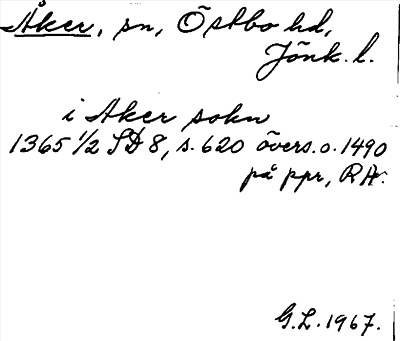 Åker, sn, Östbo hd,
Jönk. l.
i Aker sokn
1365 1/2 SD 8, s. 620 övers. o. 1490
på ppr, RA.
G.L. 1967.